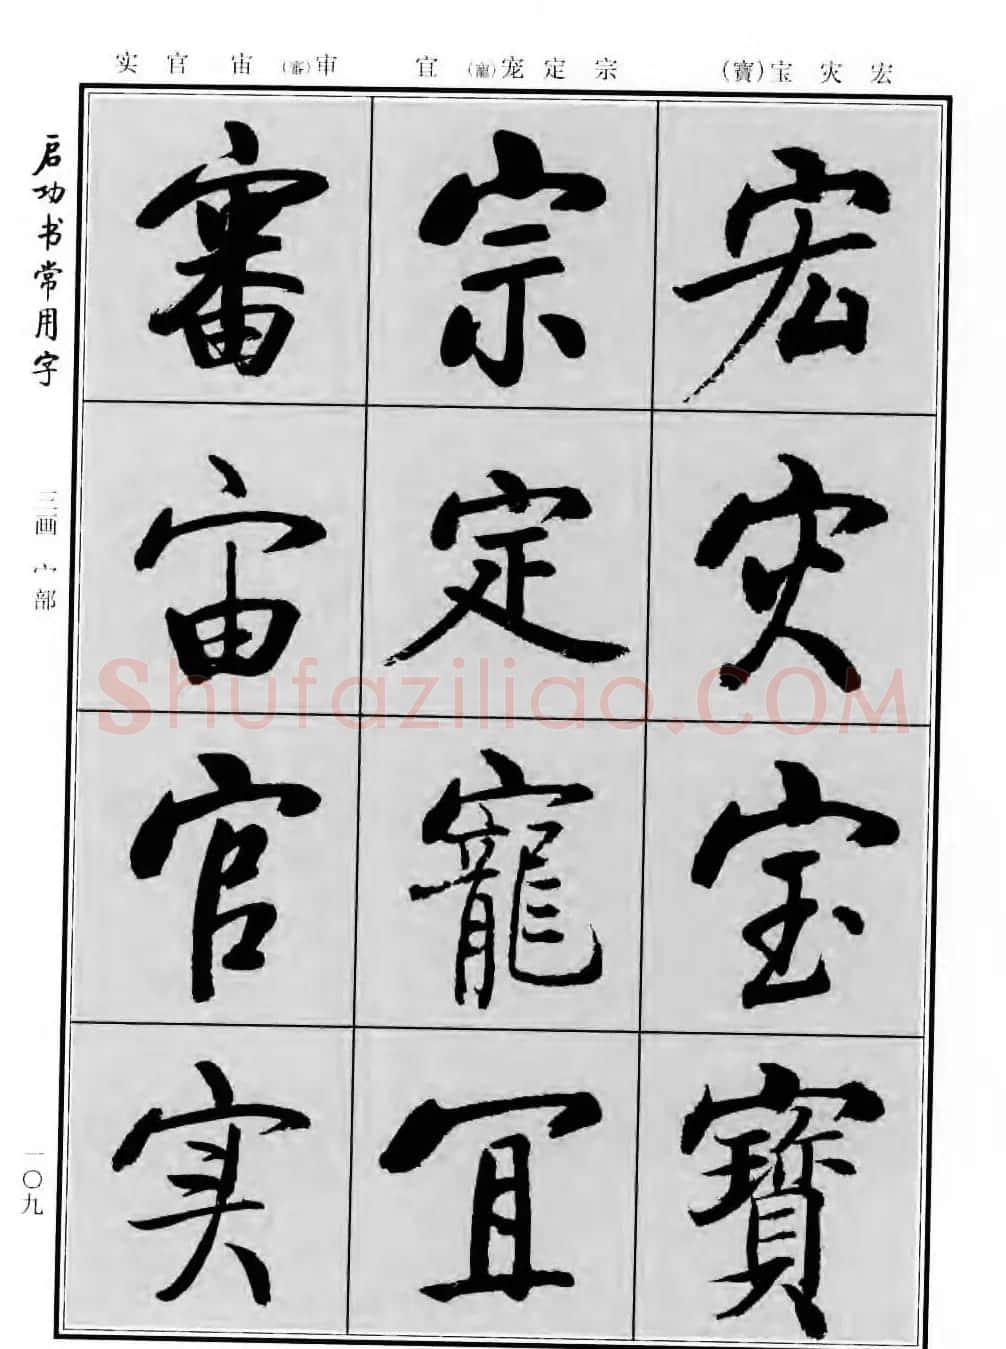 宏灾宝(寶)
宗定宠(寵)宜
审(審)宙官实
宏
灾
宝
寶
宗
定
寵
宜
審
宙
官
实
启功书常用字
三画 宀部
一〇九
Shufaziliao.COM